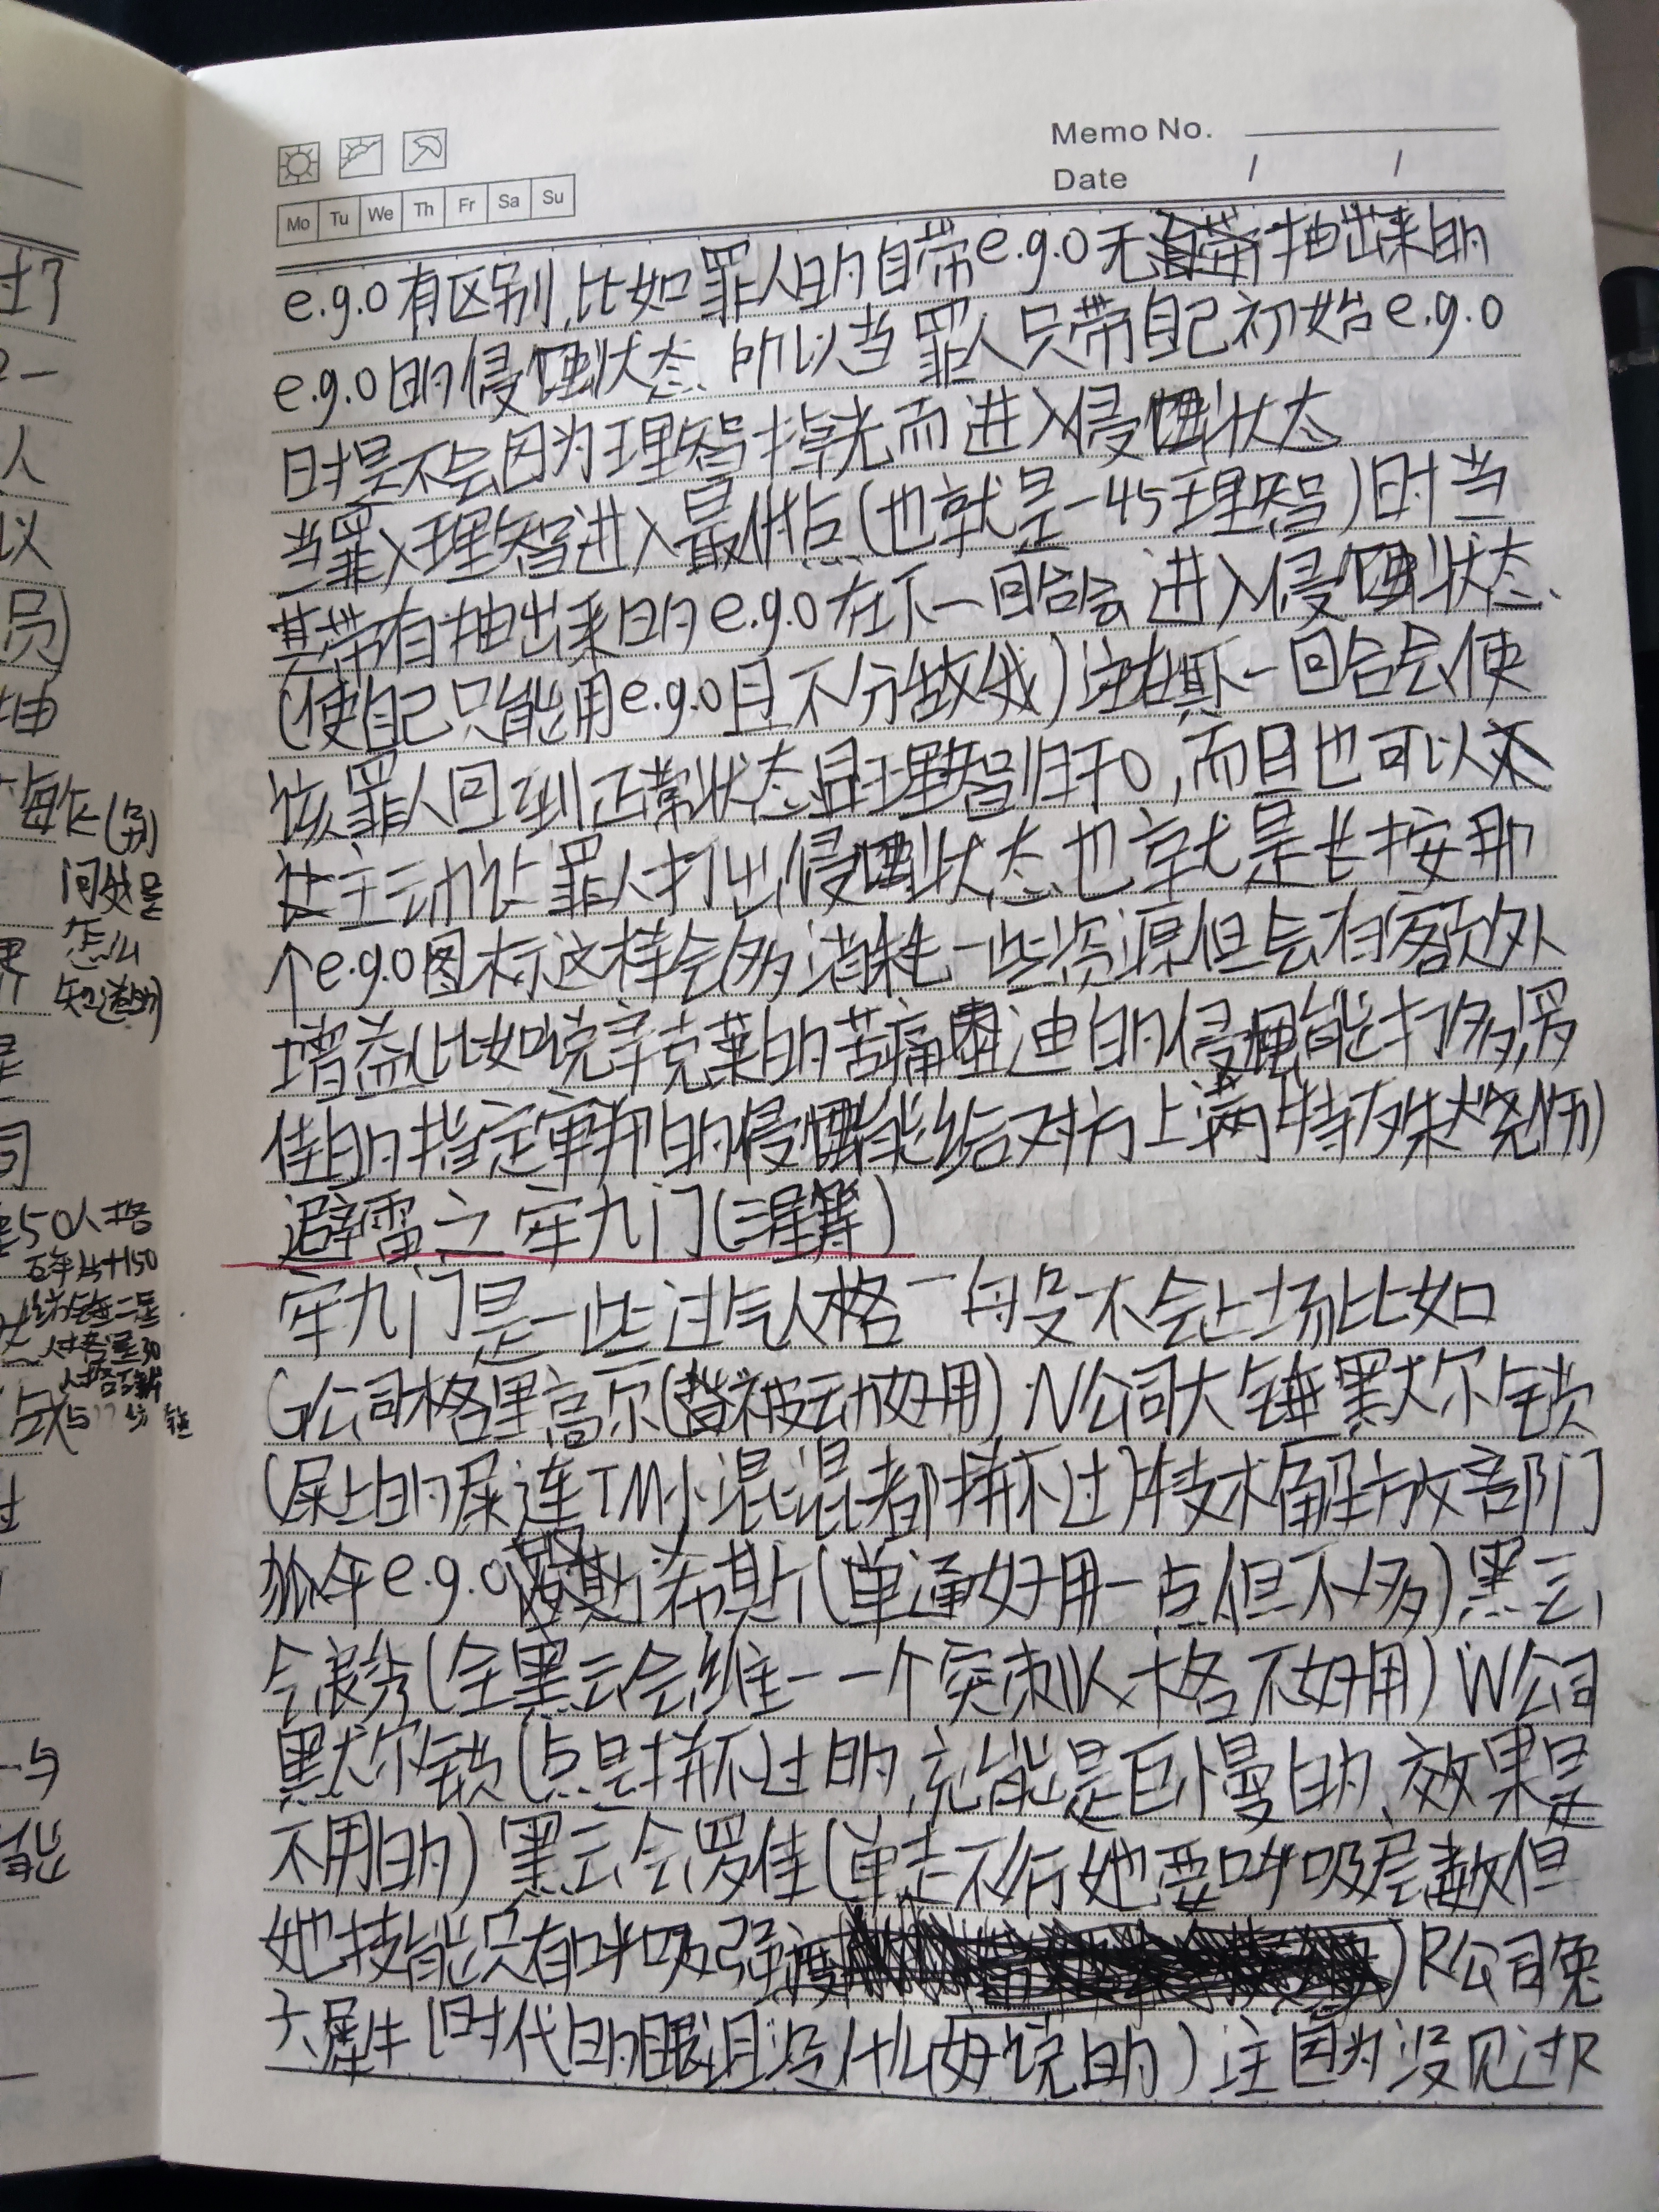 Memo No.
Date / /
Mo Tu We Th Fr Sa Su
e.g.o有区别,比如罪人的自带e.g.o无抽出来的
e.g.o的侵蚀状态.所以当罪人只带自己初始e.g.o
时是不会因为理智掉光而进入侵蚀状态
当罪人理智进入最低点(也就是-45理智)时当
其带有抽出来的e.g.o在下一回合会进入侵蚀状态、
(使自己只能用e.g.o且不分敌我)注在其下一回合会使
该罪人回到正常状态且理智归于0,而且也可以
主动让罪人打出侵蚀状态也就是长按那
个e.g.o图标这样会多消耗一些资源但会有额外
增益(比如说辛克莱的苦痛 迪的侵蚀能打多,罗
佳的指定审判的侵蚀能给对方上满特殊烧伤)
避雷之牢九门(混算)
牢九门是一些过气人格一般不会上场比如
G公司格里高尔(替被动好用)N公司大锤默尔索
(屎上的屎连TM小混混都拼不过)技术解放部门
e.g.o希斯(单通好用一点但不多)黑云
会良秀(全黑云会唯一一个突刺人格不好用)W公司
默尔索(点是拼不过的,充能是巨慢的、效果是
不用的)黑云会罗佳(单走不行她要呼吸层数但
她技能只有呼吸强度)R公司兔
犀牛(时代的眼泪没什么好说的)注因为没见过R
过了
一
人
以
员)
抽
每作(别
问我是
怎么
知道的)
界
司
50人格
人格
与
能